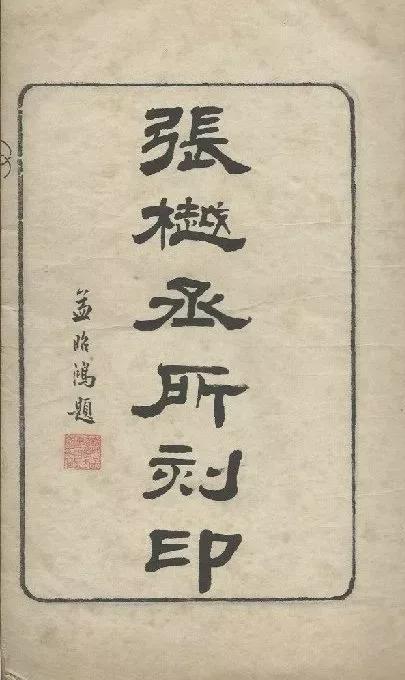 張樾丞所刻印
孟昭鴻題